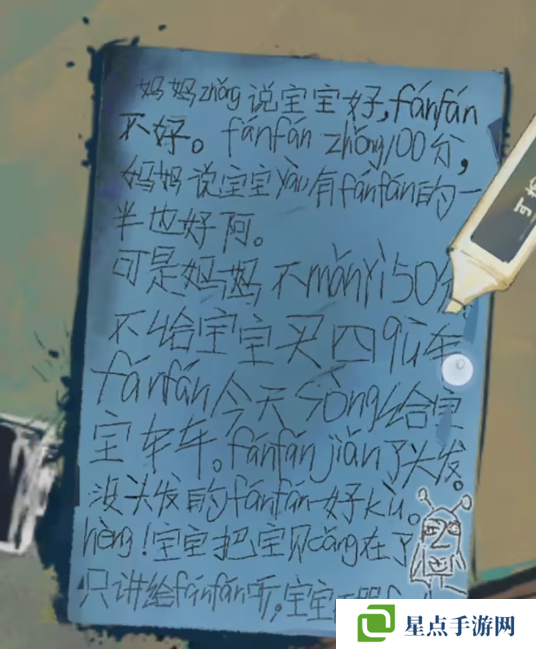 妈妈zhǒng说宝宝好,fánfán
不好。fánfán zhǒng100分,
妈妈说宝宝yào有fánfán的一
半也好阿。
可是妈妈不mǎnyì50分
不给宝宝买四qū车
fánfán今天sòng给宝
宝车车。fánfán jiǎn了头发。
没头发的fánfán好kù。
hèng!宝宝把宝贝cáng在了
只讲给fánfán听,宝宝
星点手游网